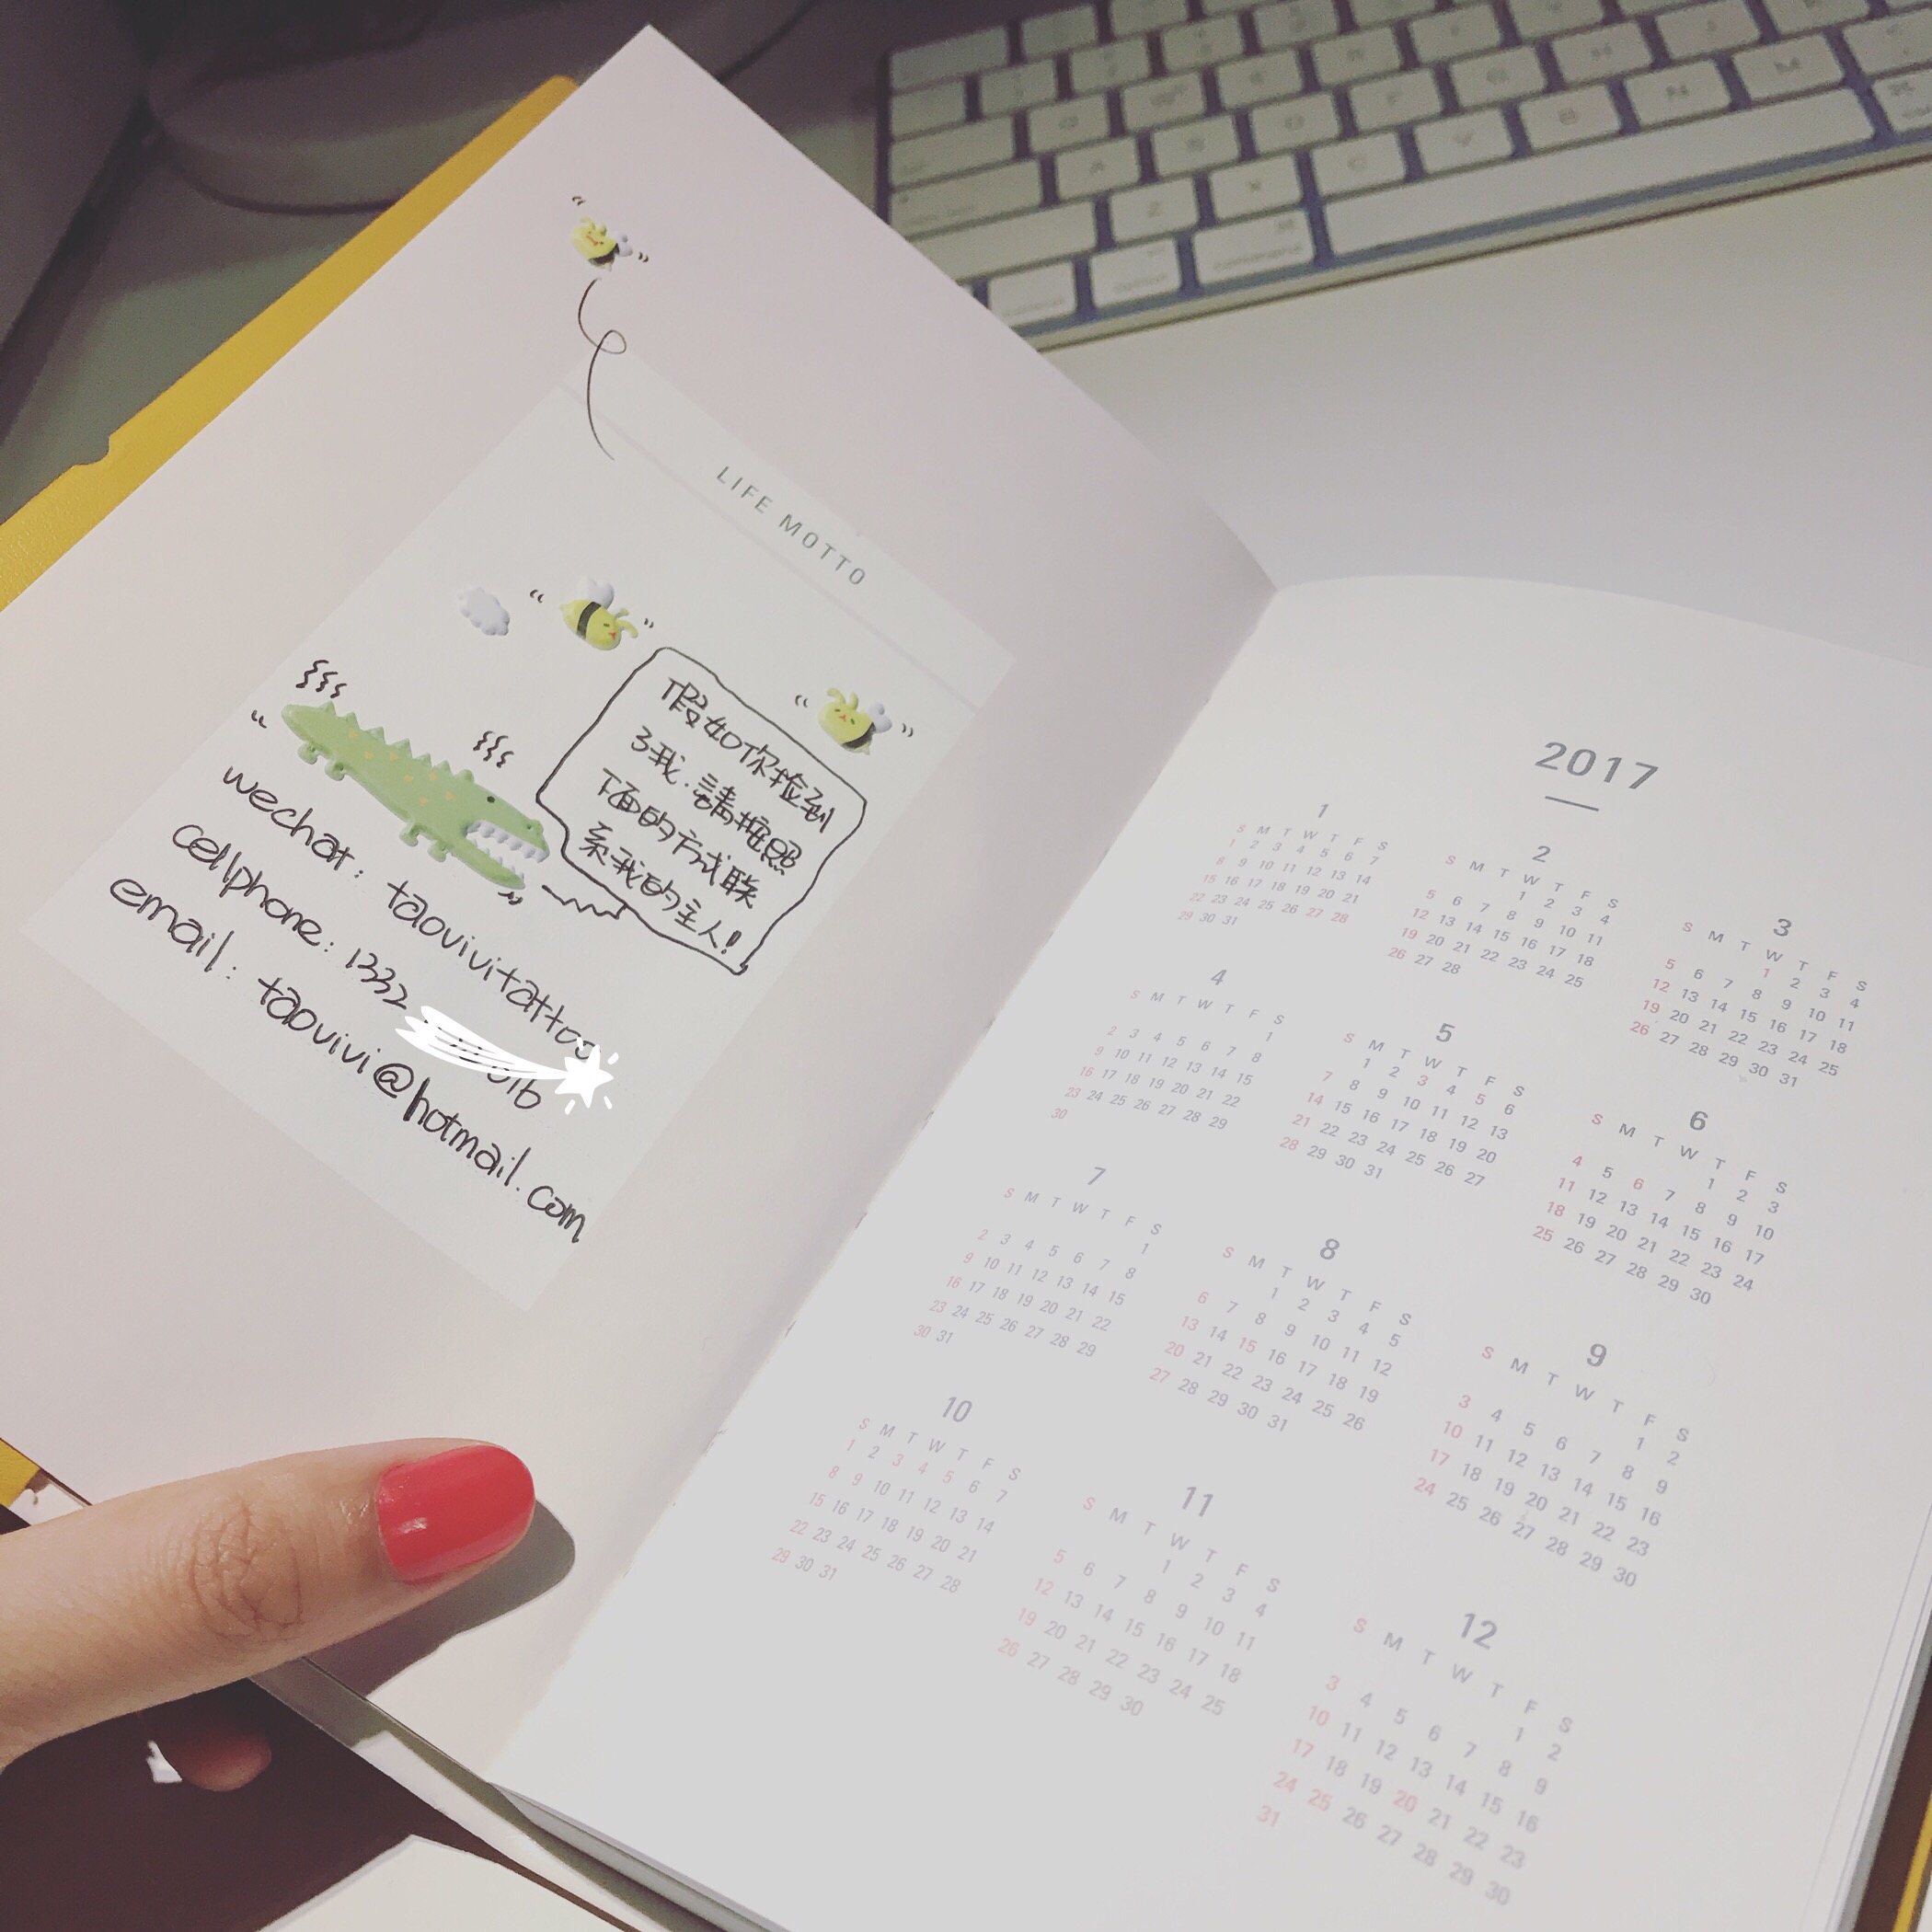 LIFE MOTTO
假如你捡到
了我.請按照
下面的方式联
系我的主人!
wechat: taovivitattoo
cellphone: 1332
email: taovivi@hotmail.com
2017
1
S M T W T F S
1 2 3 4 5 6 7
8 9 10 11 12 13 14
15 16 17 18 19 20 21
22 23 24 25 26 27 28
29 30 31
2
S M T W T F S
1 2 3 4
5 6 7 8 9 10 11
12 13 14 15 16 17 18
19 20 21 22 23 24 25
26 27 28
3
S M T W T F S
1 2 3 4
5 6 7 8 9 10 11
12 13 14 15 16 17 18
19 20 21 22 23 24 25
26 27 28 29 30 31
4
S M T W T F S
1
2 3 4 5 6 7 8
9 10 11 12 13 14 15
16 17 18 19 20 21 22
23 24 25 26 27 28 29
30
5
S M T W T F S
1 2 3 4 5 6
7 8 9 10 11 12 13
14 15 16 17 18 19 20
21 22 23 24 25 26 27
28 29 30 31
6
S M T W T F S
1 2 3
4 5 6 7 8 9 10
11 12 13 14 15 16 17
18 19 20 21 22 23 24
25 26 27 28 29 30
7
S M T W T F S
1
2 3 4 5 6 7 8
9 10 11 12 13 14 15
16 17 18 19 20 21 22
23 24 25 26 27 28 29
30 31
8
S M T W T F S
1 2 3 4 5
6 7 8 9 10 11 12
13 14 15 16 17 18 19
20 21 22 23 24 25 26
27 28 29 30 31
9
S M T W T F S
1 2
3 4 5 6 7 8 9
10 11 12 13 14 15 16
17 18 19 20 21 22 23
24 25 26 27 28 29 30
10
S M T W T F S
1 2 3 4 5 6 7
8 9 10 11 12 13 14
15 16 17 18 19 20 21
22 23 24 25 26 27 28
29 30 31
11
S M T W T F S
1 2 3 4
5 6 7 8 9 10 11
12 13 14 15 16 17 18
19 20 21 22 23 24 25
26 27 28 29 30
12
S M T W T F S
1 2
3 4 5 6 7 8 9
10 11 12 13 14 15 16
17 18 19 20 21 22 23
24 25 26 27 28 29 30
31